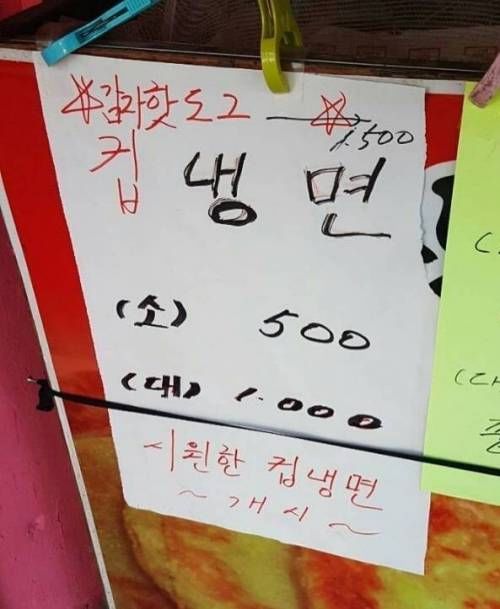 ☆감자핫도그 → ☆ 1.500
컵 냉면
(소) 500
(대) 1.000
시원한 컵냉면
~개시~